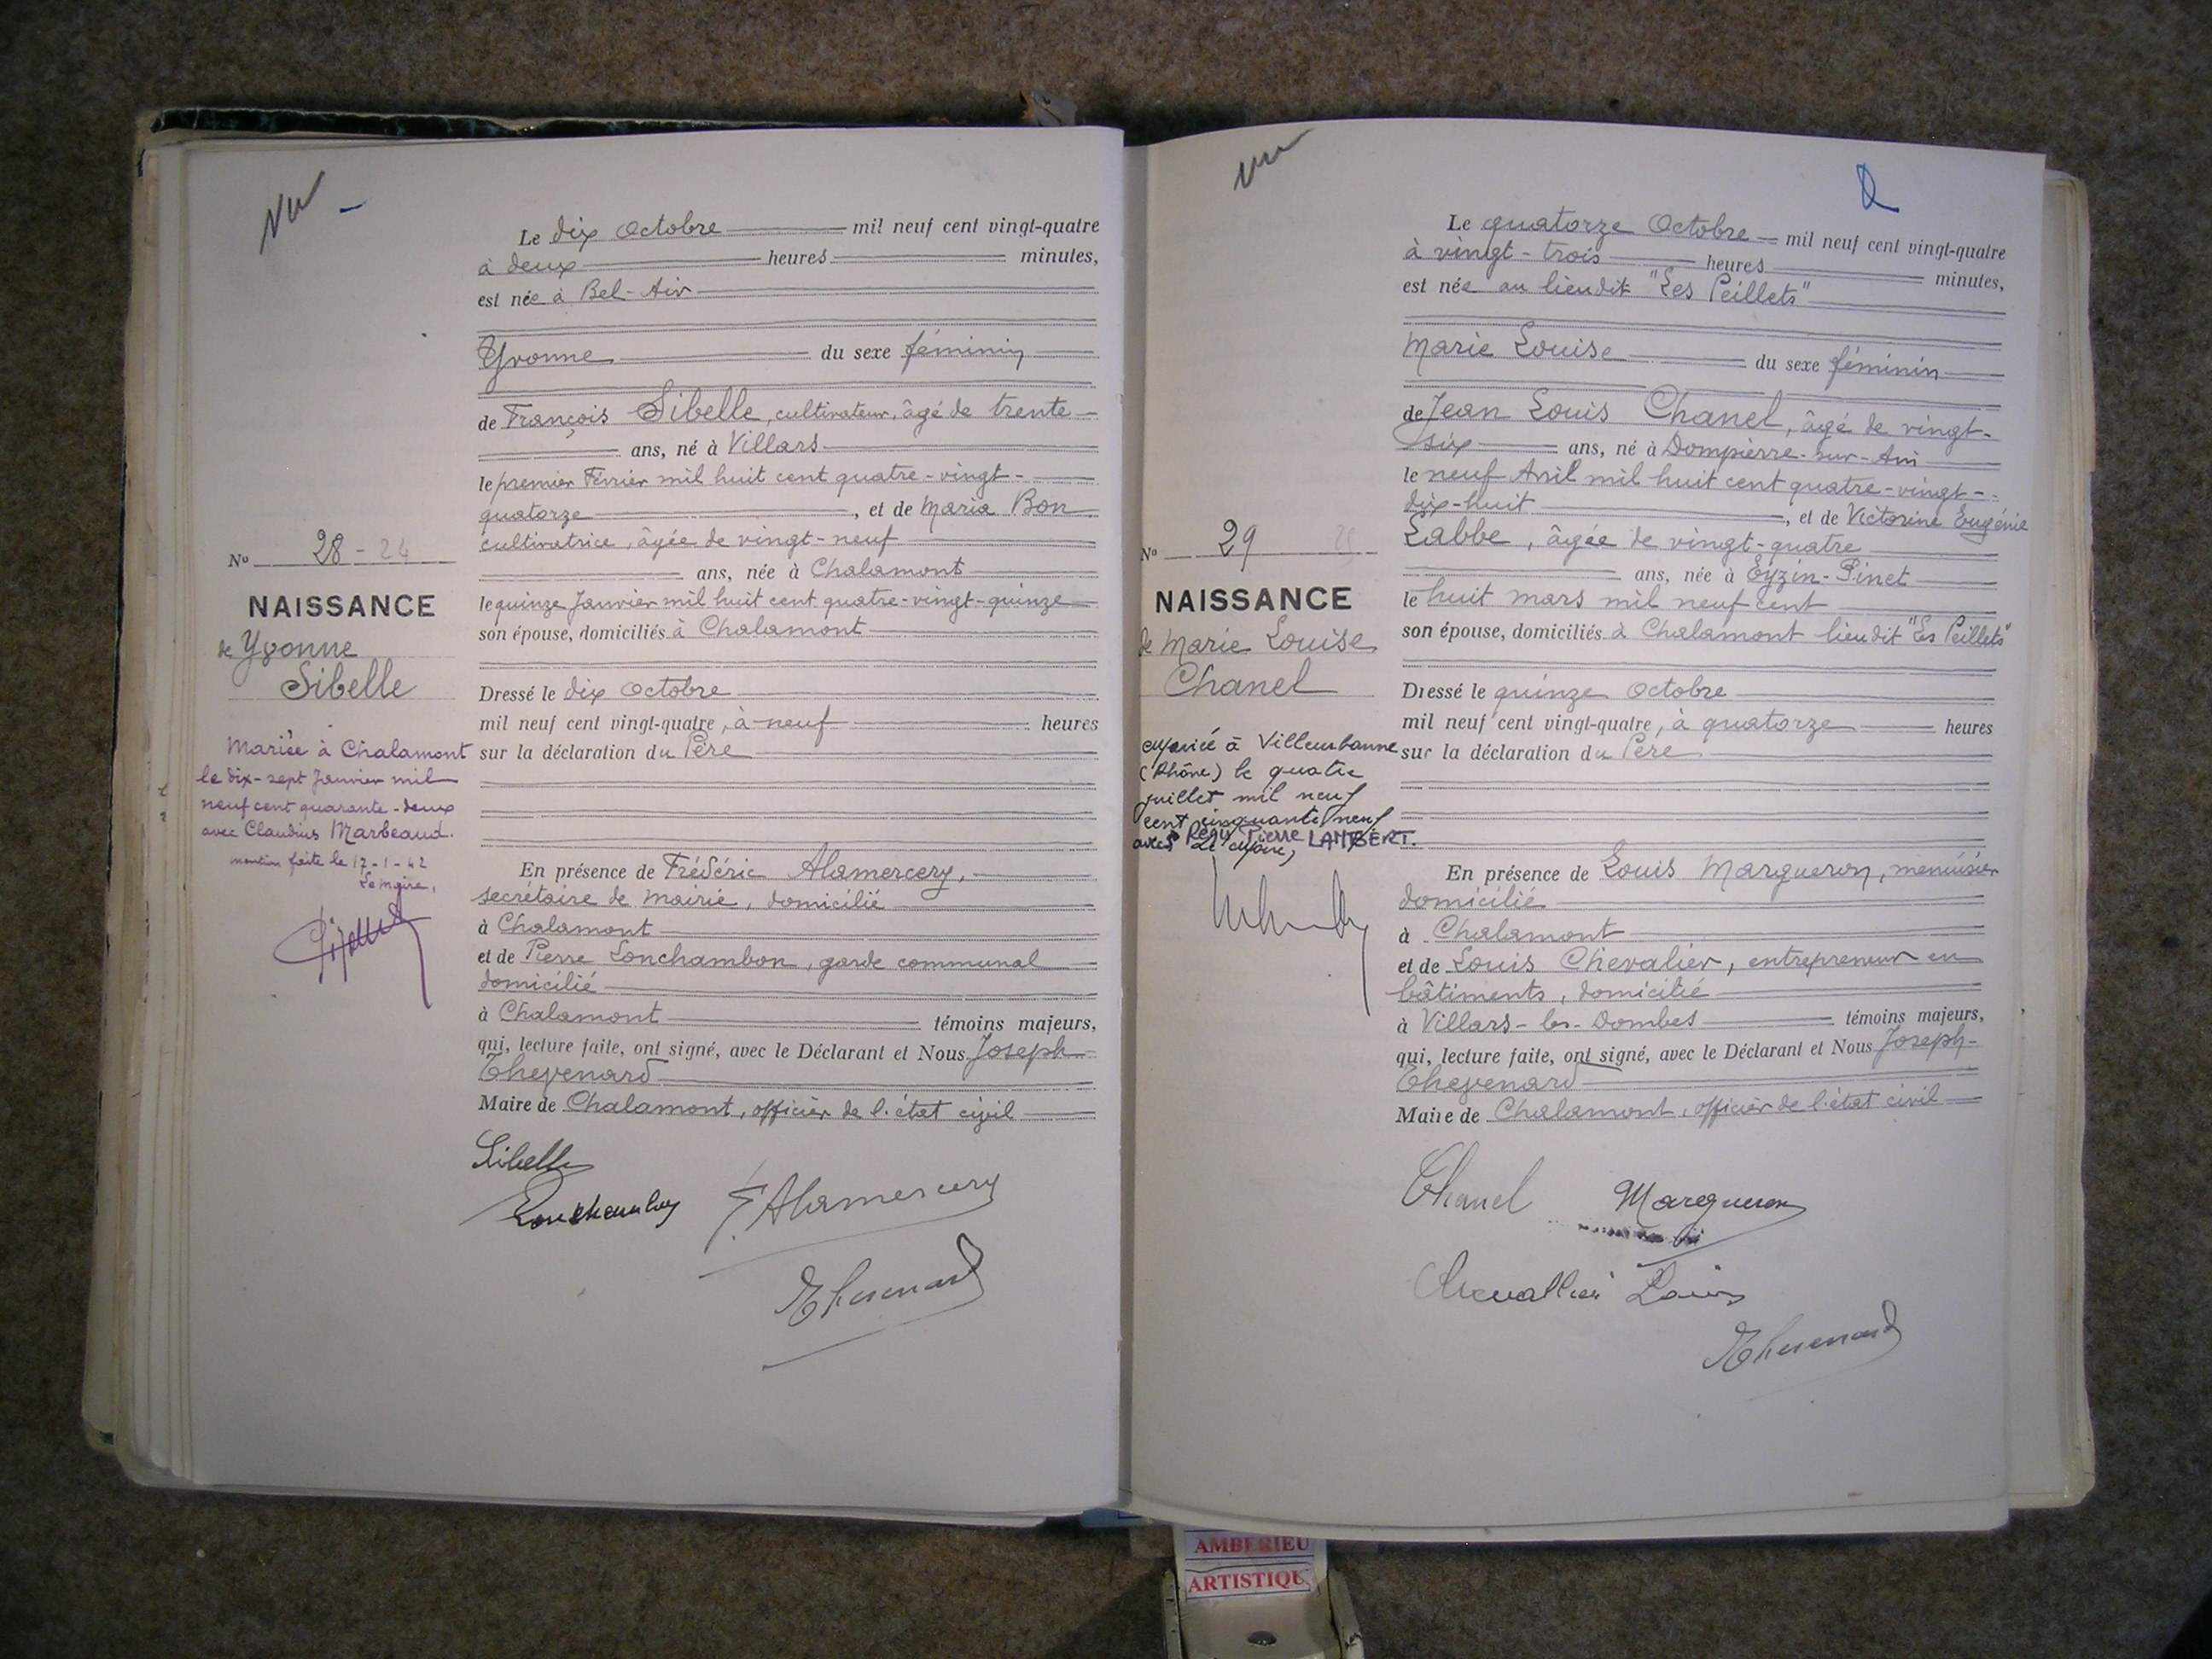 Vu
Le dix Octobre mil neuf cent vingt-quatre
à deux heures minutes,
est née à Bel-Air
Yvonne du sexe féminin
de François Sibelle, cultivateur, âgé de trente
ans, né à Villars
le premier Février mil huit cent quatre-vingt-
quatorze, et de Maria Bon
cultivatrice, âgée de vingt-neuf
ans, née à Chalamont
le quinze Janvier mil huit cent quatre-vingt-quinze
son épouse, domiciliés à Chalamont
Dressé le dix Octobre
mil neuf cent vingt-quatre, à neuf heures
sur la déclaration du Père
En présence de Frédéric Alamercery,
secrétaire de mairie, domicilié
à Chalamont
et de Pierre Lonchambon, garde communal
domicilié
à Chalamont témoins majeurs,
qui, lecture faite, ont signé, avec le Déclarant et Nous Joseph
Thevenard
Maire de Chalamont, officier de l'état civil
Sibelle
Lonchambon F. Alamercery
Thevenard
No 28 - 24
NAISSANCE
de Yvonne
Sibelle
Mariée à Chalamont
le dix-sept Janvier mil
neuf cent quarante-deux
avec Claudius Marbeaud.
mention faite le 17-1-42
Le maire,
Vu
Le quatorze Octobre mil neuf cent vingt-quatre
à vingt-trois heures minutes,
est née au lieudit "Les Peillets"
Marie Louise du sexe féminin
de Jean Louis Chanel, âgé de vingt-
six ans, né à Dompierre-sur-Ain
le neuf Avril mil huit cent quatre-vingt-
dix-huit, et de Victorine Eugénie
Labbe, âgée de vingt-quatre
ans, née à Eyzin-Pinet
le huit mars mil neuf cent
son épouse, domiciliés à Chalamont lieudit "Les Peillets"
Dressé le quinze Octobre
mil neuf cent vingt-quatre, à quatorze heures
sur la déclaration du Père
En présence de Louis Margueron, menuisier
domicilié
à Chalamont
et de Louis Chevalier, entrepreneur en
bâtiments, domicilié
à Villars-les-Dombes témoins majeurs,
qui, lecture faite, ont signé, avec le Déclarant et Nous Joseph-
Thevenard
Maire de Chalamont, officier de l'état civil
Chanel Margueron
Chevallier Louis
Thevenard
No 29
NAISSANCE
de Marie Louise
Chanel
Mariée à Villeurbanne
(Rhône) le quatre
juillet mil neuf
cent cinquante neuf
avec Pierre LAMBERT.
Le Maire,
AMBERIEU
ARTISTIQU